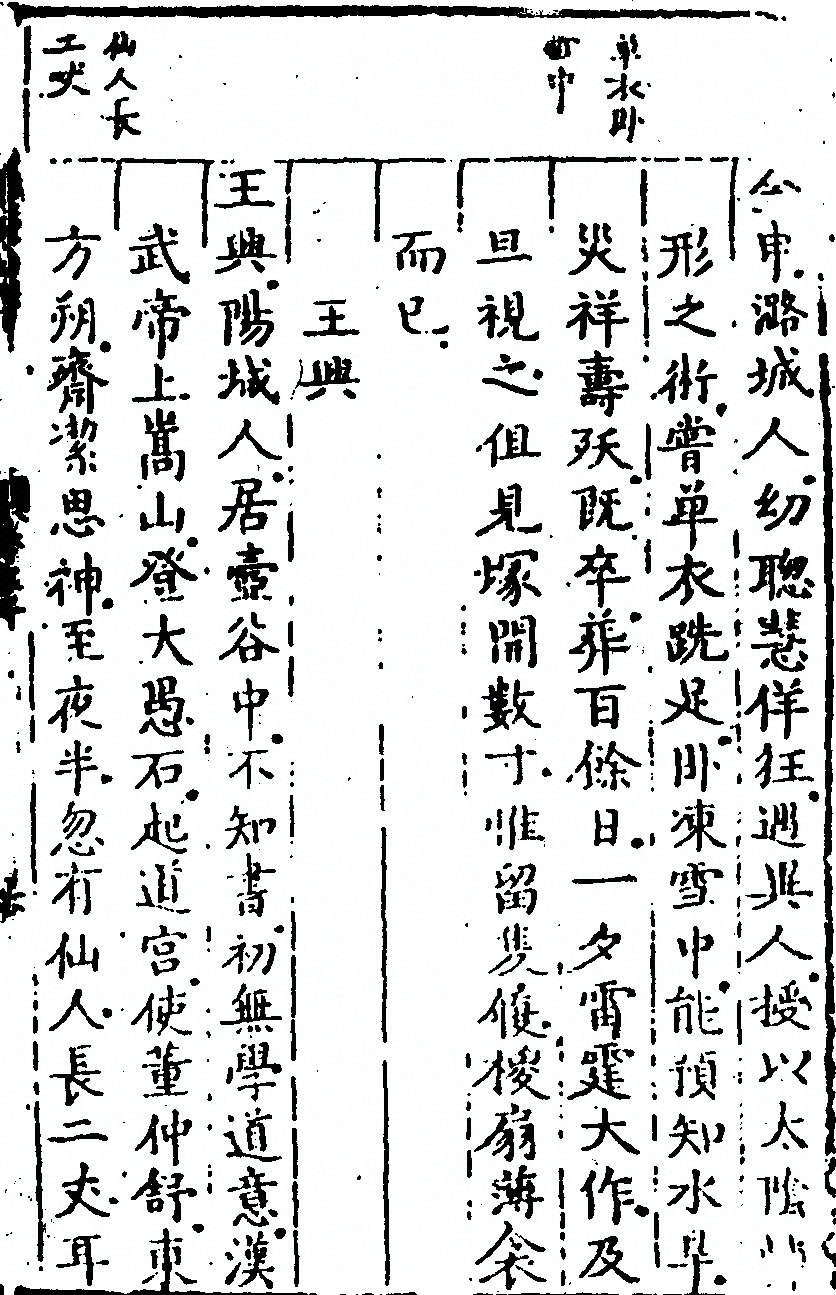 單衣卧
雪中
仙人長
二丈
公申潞城人幼聰慧佯狂遇異人授以太陰
形之術嘗單衣跣足卧凍雪中能預知水旱
災祥壽殀既卒葬百餘日一夕雷霆大作及
旦視之但見塚開數寸惟留隻履棱扇薄衾
而已
王興
王興陽城人居壺谷中不知書初無學道意漢
武帝上嵩山登大愚石起道宮使董仲舒東
方朔齋潔思神至夜半忽有仙人長二丈耳